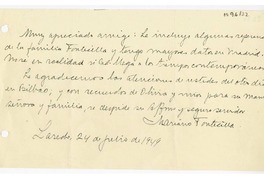 Muy apreciado amigo: Le incluyo algunas
de la familia Fontecilla y tengo mayores datos en Madrid.
en realidad si Vd llega a los tiempos contemporáneos.
Le agradecemos las atenciones de ustedes del otro día
en Bilbao; y con recuerdos de Elvira y mios para su
señora y familia, se despide su affmo y seguro servidor
Mariano Fontecilla
Laredo, 24 de julio de 1949